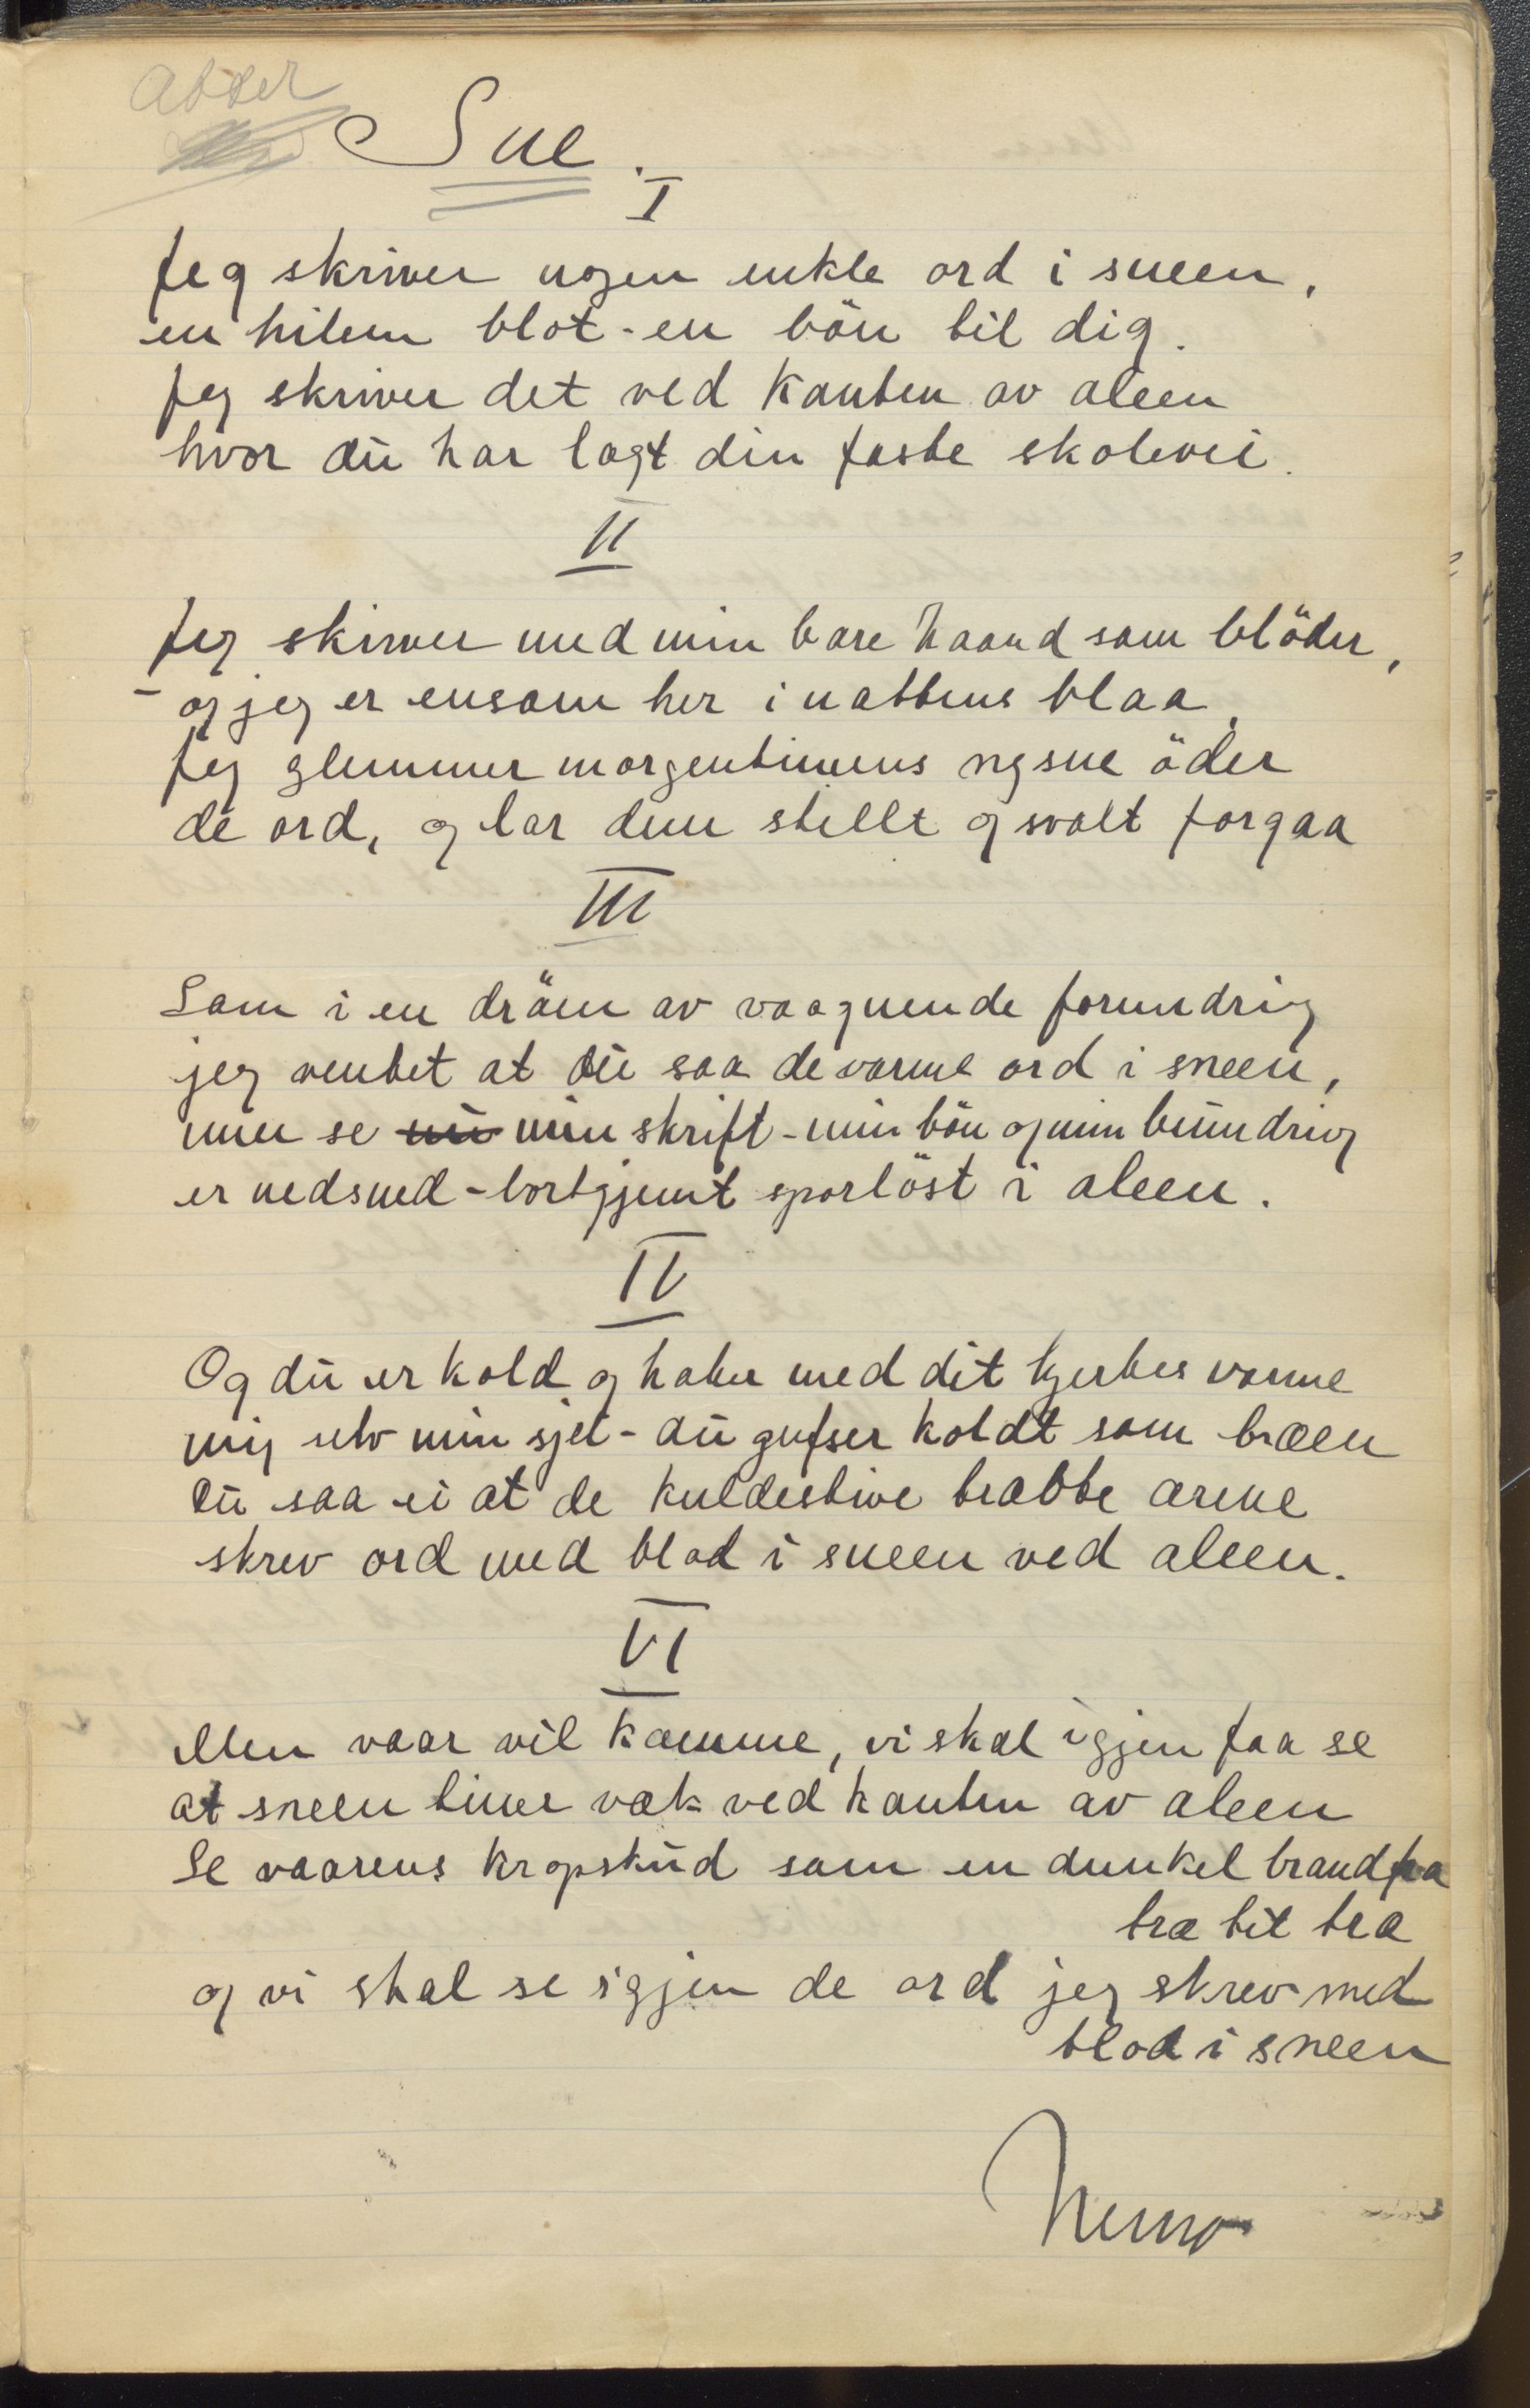 Sne.
I
Jeg skriver nogen enkle ord i sneen,
en hilsen blot - en bön til dig.
Jeg skriver det ved kanten av aleen
hvor du har lagt din faste skolevei.
II
Jeg skirver med min bare haand som blöder,
- og jeg er ensom her i nattens blaa,
Jeg glemmer morgentimens nysne öder
de ord, og lar dem stille og svalt forgaa
III
Som i en dröm av vaagnende forundring
jeg ventet at du saa de varme ord i sneen,
men se min skrift - min bön og min beundring
er nedsned - bortgjemt sporlöst i aleen.
IV
Og du er kold og haler med dit hjertes varme
mig selv min sjel - du gufser koldt som bræen
Du saa ei at de kuldestive trætte arme
skrev ord med blod i sneen ved aleen.
VI
Men vaar vil komme, vi skal igjen faa se
at sneen tiner væk ved kanten av aleen
Se vaarens kropskud som en dunkel brand fra
træ til træ
og vi skal se igjen de ord jeg skrev med
blod i sneen
Nemo